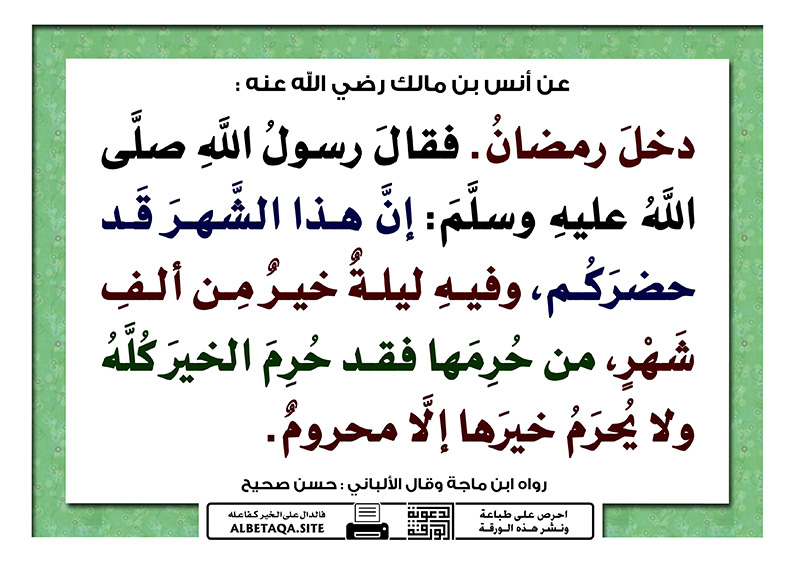 عن أنس بن مالك رضي الله عنه :
دخلَ رمضانُ. فقالَ رسولُ اللَّهِ صلَّى
اللَّهُ عليهِ وسلَّمَ: إنَّ هذا الشَّهرَ قَد
حضرَكُم، وفيهِ ليلةٌ خيرٌ مِن ألفِ
شَهْرٍ، من حُرِمَها فقد حُرِمَ الخيرَ كُلَّهُ
ولا يُحرَمُ خيرَها إلَّا محرومٌ.
رواه ابن ماجة وقال الألباني : حسن صحيح
احرص على طباعة
ونشر هذه الورقة
الدعوية
الورقة
فالدال على الخير كفاعله
ALBETAQA.SITE